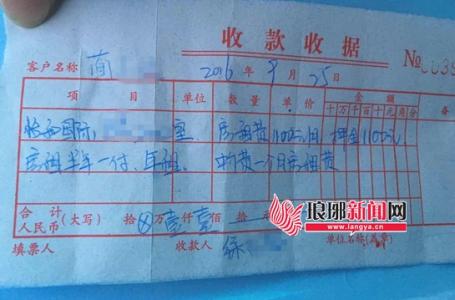 收款收据
No
客户名称 2016年9月25日
项 目 单位 数量 单价 金额 备
十万千百十元角分
国际 室 房租费1100元/月 押金1100元
房租半年一付、年租 一个月房租费
合计人民币(大写) 拾 万壹仟壹佰 拾 元
琅琊新闻网
www.langya.cn
填票人 收款人 单位名称(盖章)